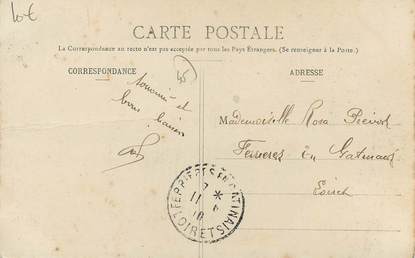 10€
CARTE POSTALE
La Correspondance au recto n'est pas acceptée par tous les Pays Étrangers. (Se renseigner à la Poste.)
CORRESPONDANCE
ADRESSE
45
et
bons baisers
Mademoiselle Rosa
Ferrieres en Gatinais
FERRIERES EN GATINAIS
LOIRET